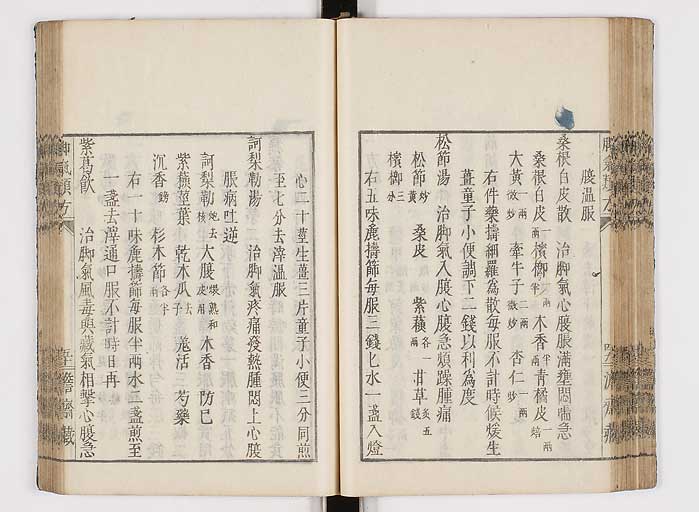 腹溫服
桑根白皮散　治脚氣心腹脹滿壅悶喘急
桑根白皮一兩　檳榔一兩半　木香半兩　青橘皮一兩焙
大黃一兩微炒　牽牛子二兩微炒　杏仁一兩炒
右件藥擣細羅爲散每服不計時候煖生
薑童子小便調下二錢以利爲度
松節湯　治脚氣入腹心腹急煩躁腫痛
松節炒黃　桑皮　紫蘓各一兩　甘草炙五錢
檳榔三分
右五味麁擣篩每服三錢匕水一盞入燈
心二十莖生薑三片童子小便三分同煎
至七分去滓溫服
訶梨勒湯　治脚氣疼痛發熱腫悶上心腹
脹病吐逆
訶梨勒炮去核　大腹煨熟和皮用　木香　防己
紫蘓莖葉　乾木瓜去子　羗活三　芍藥
沉香鎊　杉木節各半兩
右一十味麁擣篩每服半兩水三盞煎至
一盞去滓通口服不計時日再
紫蘓飲　治脚氣風毒與藏氣相擊心腹急
脚氣類方